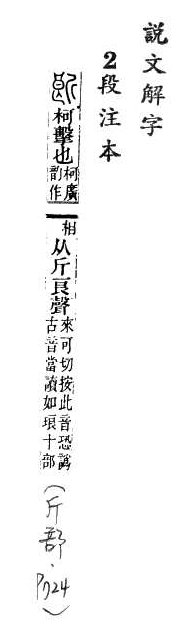 說文解字
2段注本
柯擊也柯廣韵作相从斤良聲來可切按此音恐譌古音當讀如琅十部
(斤部.P724)